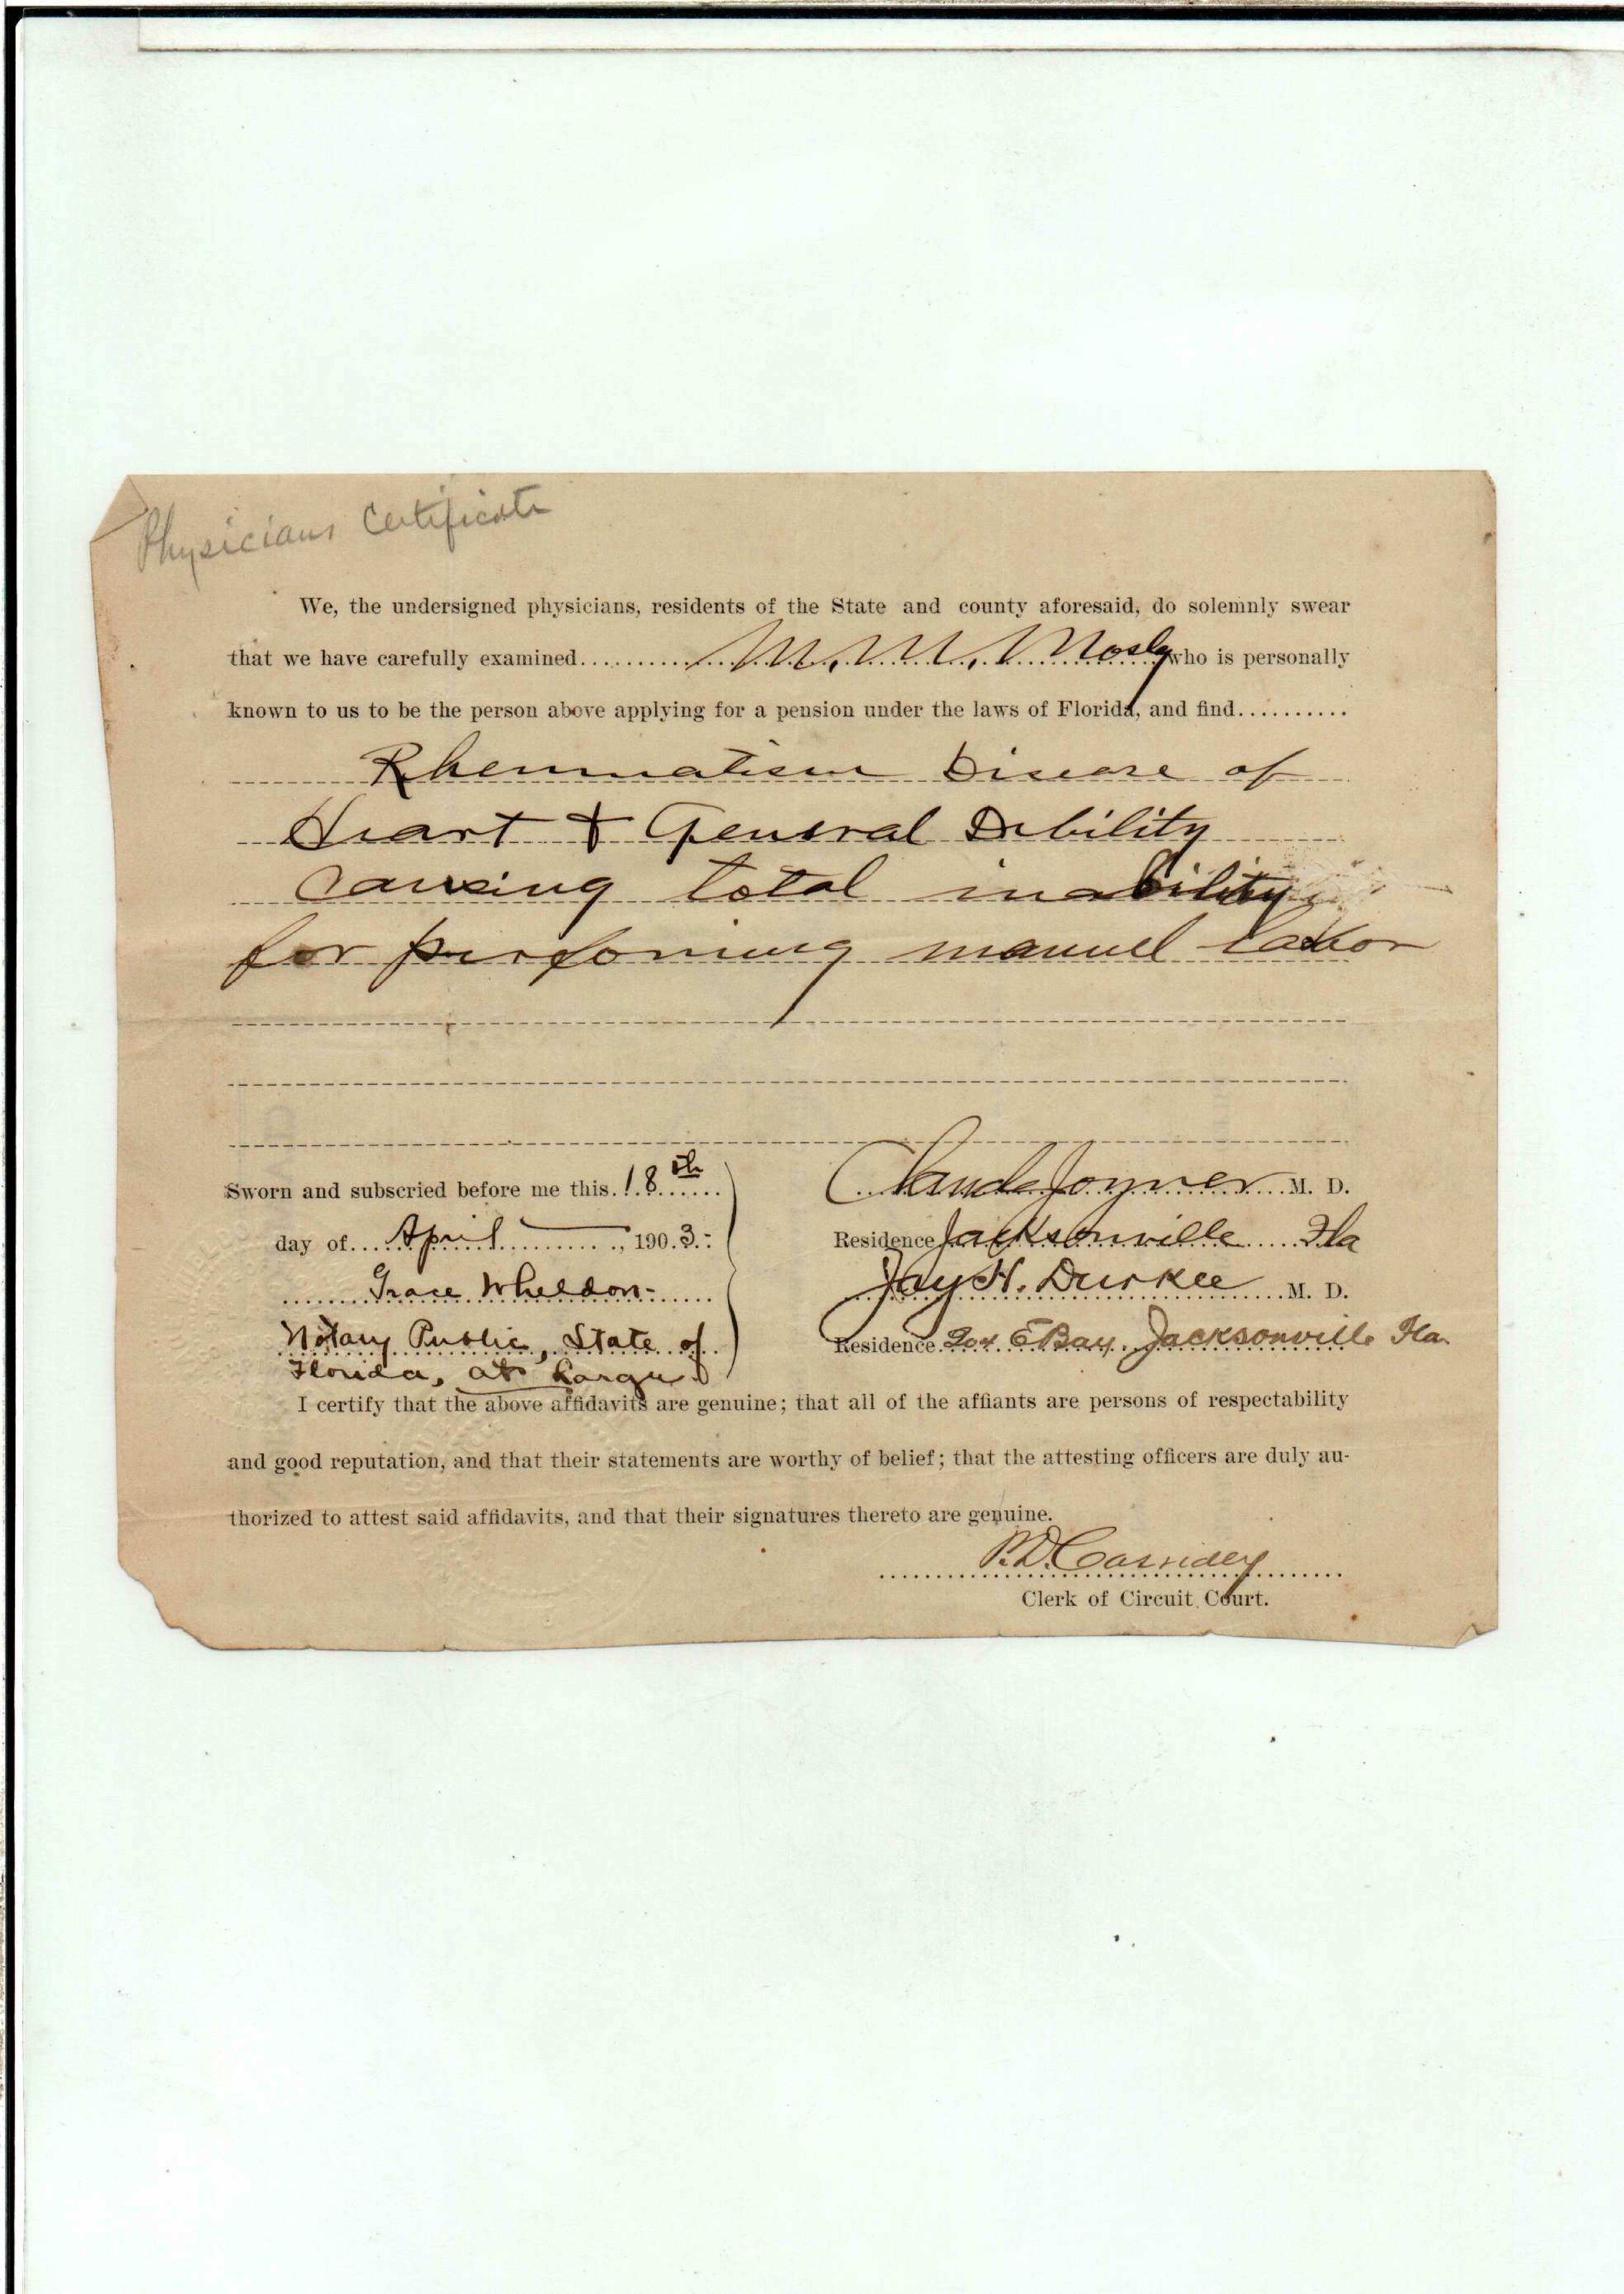 Physicians Certificate
We, the undersigned physicians, residents of the State and county aforesaid, do solemnly swear
that we have carefully examined M. M. Mosly who is personally
known to us to be the person above applying for a pension under the laws of Florida, and find
Rheumatism Disease of
Heart & General Debility
causing total inability
for perfoming manuel labor
Sworn and subscried before me this 18th
day of April, 1903.
Grace Wheldon
Notary Public, State of
Florida, at Large
Claude Joyner M. D.
Residence Jacksonville Fla
Jay H. Durkee M. D.
Residence E Bay Jacksonville Fla.
I certify that the above affidavits are genuine; that all of the affiants are persons of respectability
and good reputation, and that their statements are worthy of belief; that the attesting officers are duly au-
thorized to attest said affidavits, and that their signatures thereto are genuine.
P. D. Cassidey
Clerk of Circuit Court.